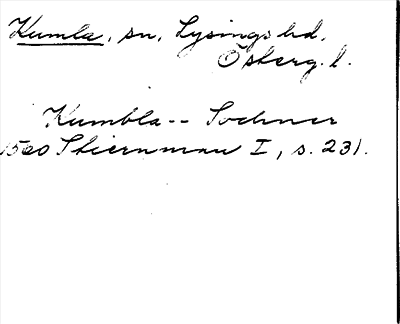 Kumla, sn, Lysings hd.
Österg. l.
Kumbla-- Sochner
1560 Stiernman I, s. 231.